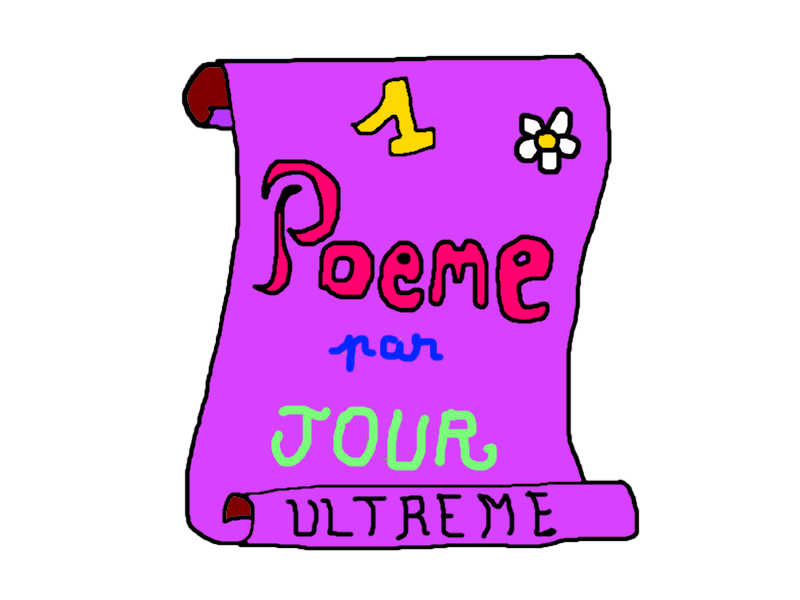 1
Poeme
par
JOUR
ULTREME